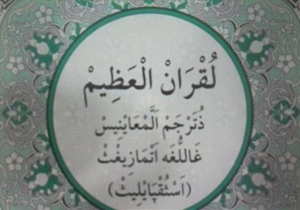 لُقْرَانْ الْعَظِيمْ
ذُتَرْجَمْ اَلْمَعَانِيسْ
غَاللُّغَه اَتْمَازِيغْتْ
(اَسْتَقْبَايْلِيثْ)